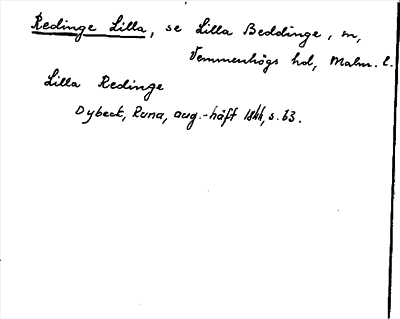 Redinge Lilla, se Lilla Beddinge, m,
Vemmenhögs hd, Malm. l.
Lilla Redinge
Dybeck, Runa, aug.-häft 1844, s. 63.